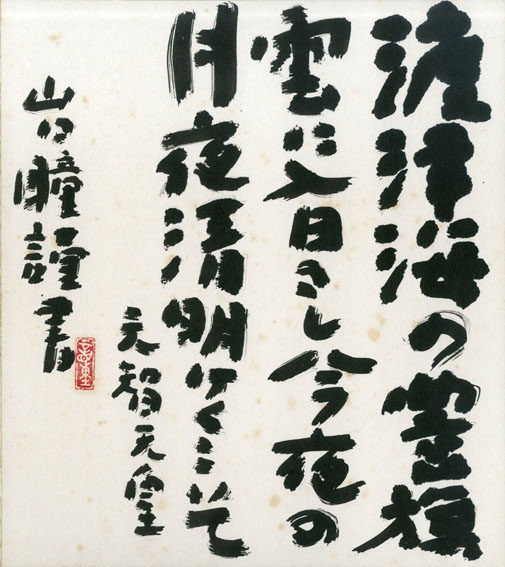 渡津海の豊旗
雲に入日さし今夜の
月夜清明けくこそ
天智天皇
山口瞳謹書